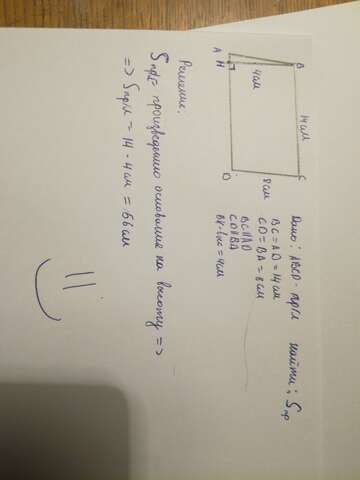 A
H
B
4 см
14 см
D
8 см
C
Дано: ABCD - пр/м
BC = AD = 14 см
CD = BA = 8 см
BC ∥ AD
CD ∥ BA
BH - выс = 4 см
Найти: Sпр
Решение:
Sпр/г = произведению основания на высоту =>
=> Sпр/м = 14 · 4 см = 56 см